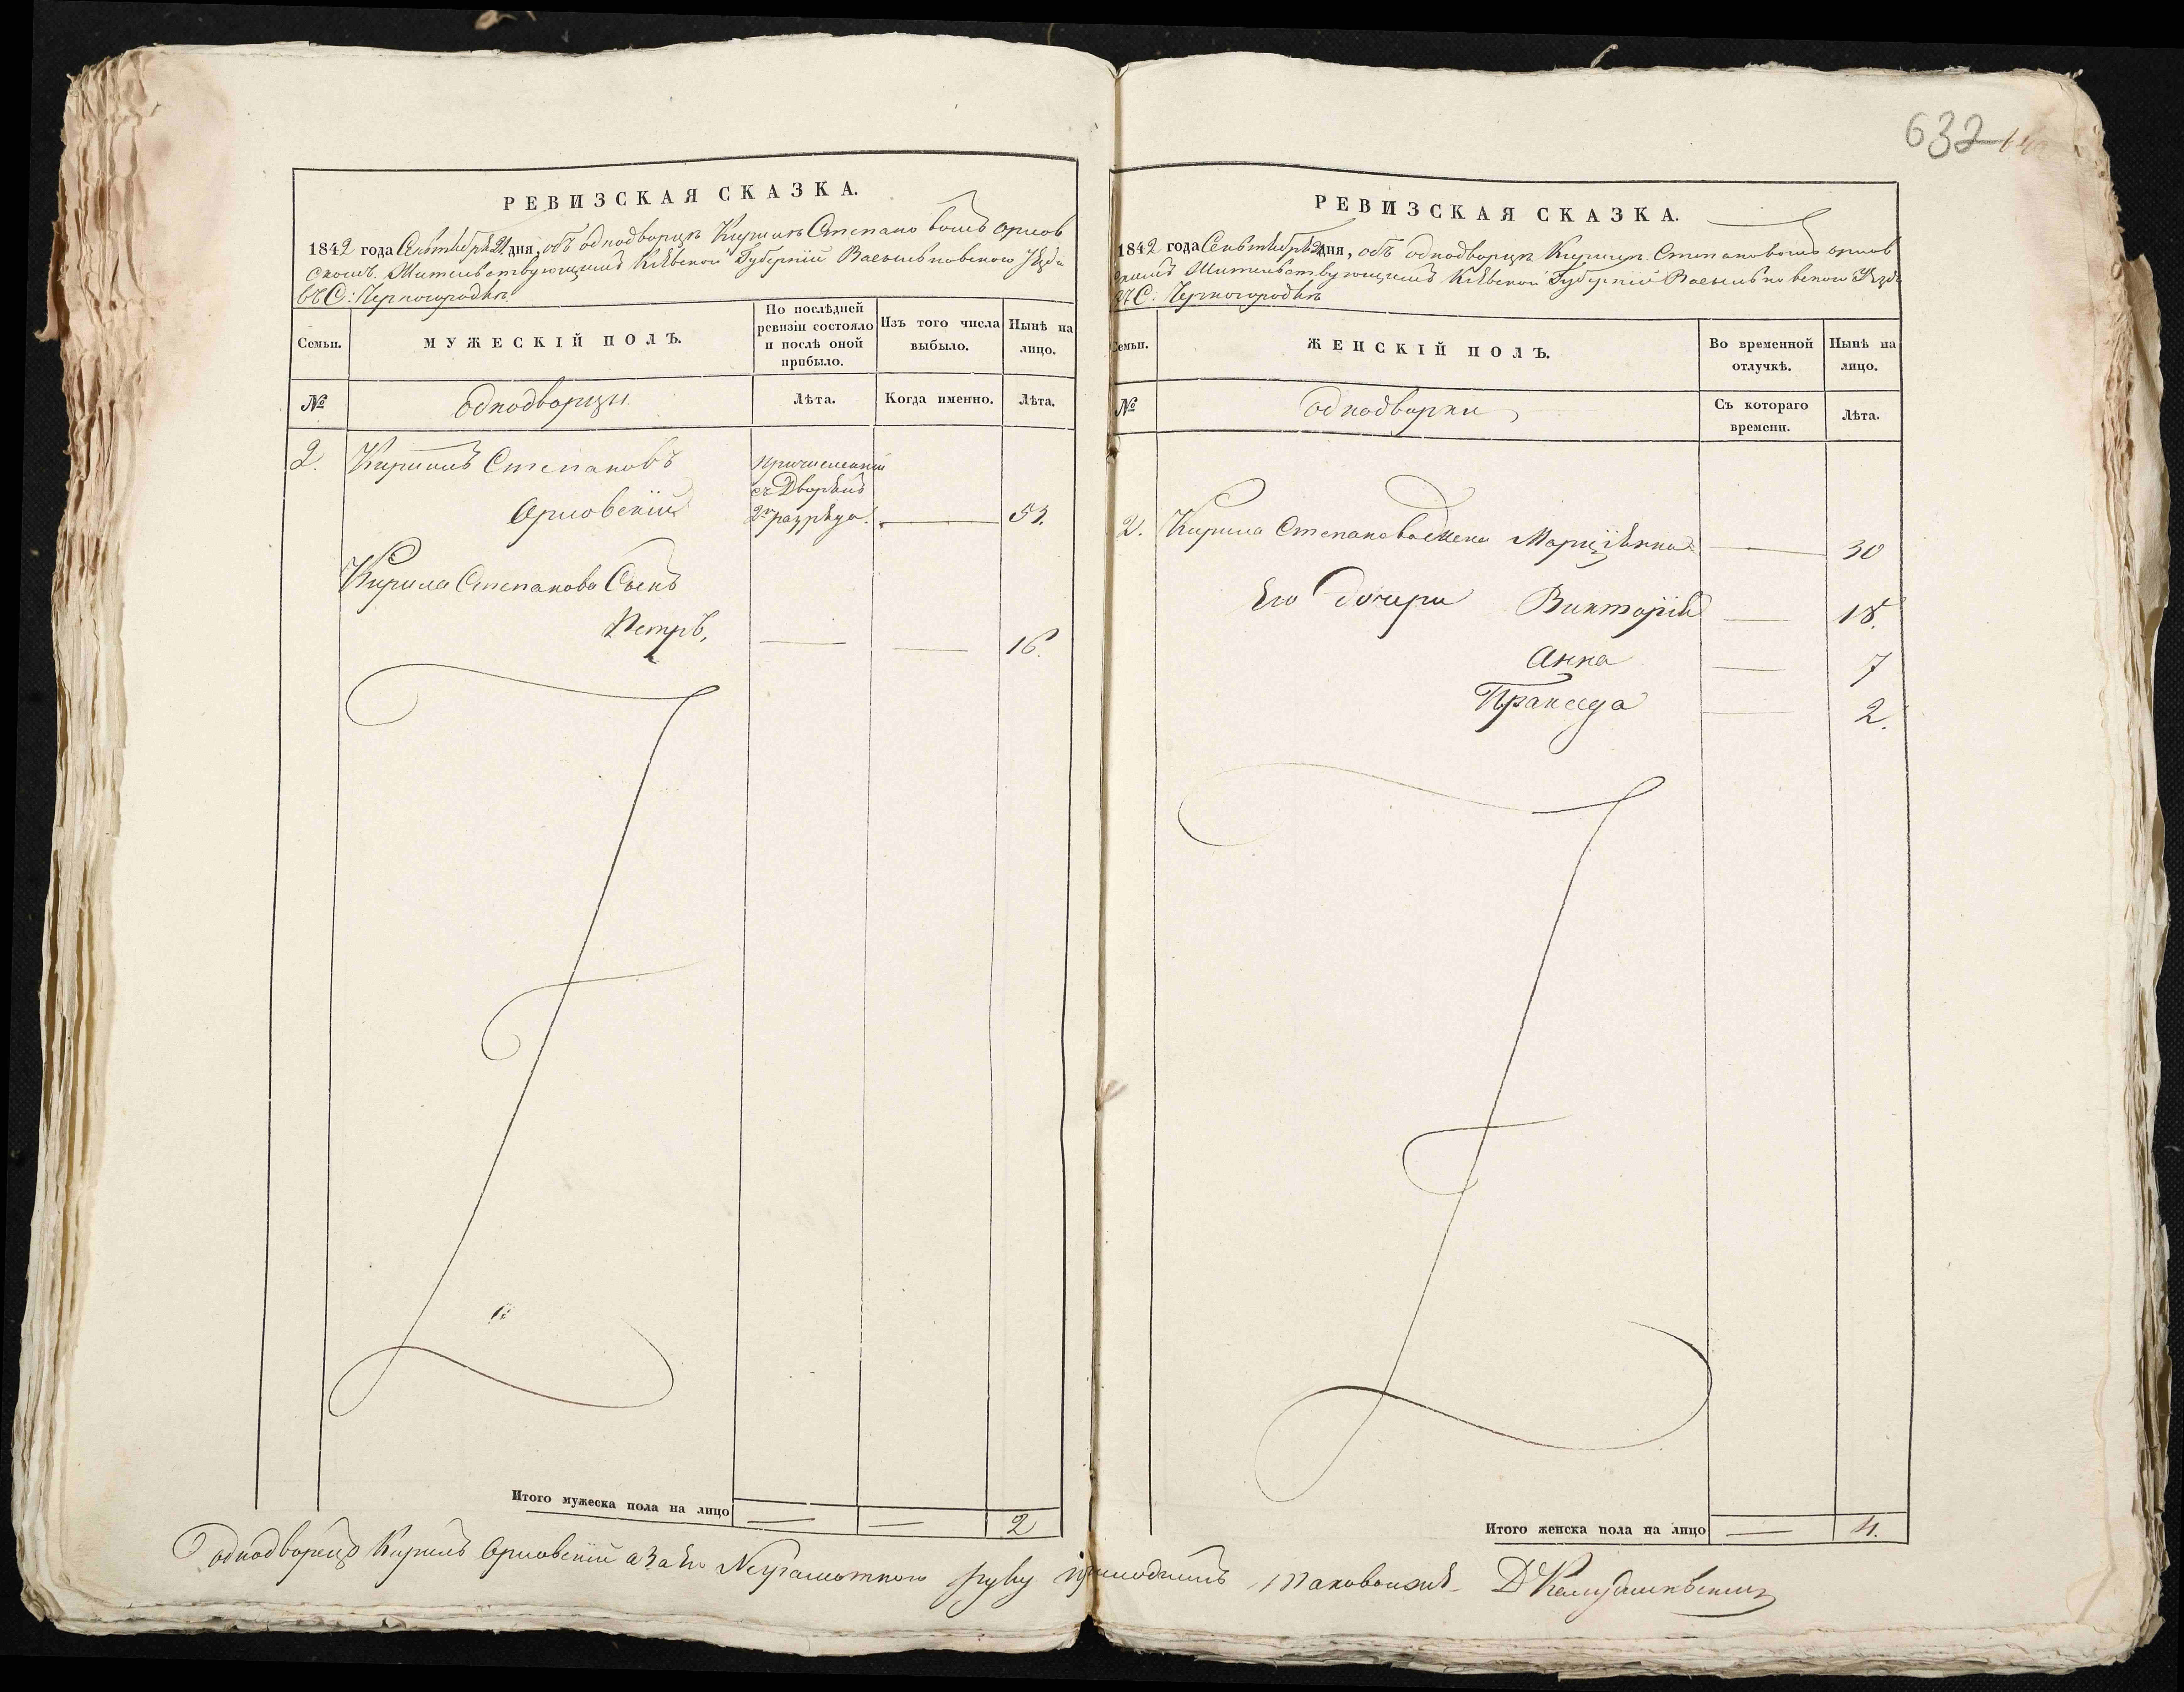 632
РЕВИЗСКАЯ СКАЗКА.
1842 года Сентября 21 дня, объ однодворцѣ Кирилѣ Степановомъ Орлов
скомъ. Жительствующимъ Кіевской Губерніи Васильковскаго Уѣзда
въ С: Черногородкѣ
Семьи.
МУЖЕСКІЙ ПОЛЪ.
По послѣдней ревизіи состояло и послѣ оной прибыло.
Изъ того числа выбыло.
Нынѣ на лицо.
№
Однодворцы
Лѣта.
Когда именно.
Лѣта.
2. Кирилъ Степановъ причисленный
съ Дворянъ
Орловскій 2го разряда.
Кирила Степанова Сынъ
Петръ, 16.
Итого мужеска пола на лицо 2
РЕВИЗСКАЯ СКАЗКА.
1842 года Сентября 21 дня, объ однодворцѣ Кирилѣ Степановомъ Орлов
скимъ Жительствующимъ Кіевской Губерніи Васильковского Уѣзда
въ С: Черногородкѣ
Семьи.
ЖЕНСКІЙ ПОЛЪ.
Во временной отлучкѣ.
Нынѣ на лицо.
№
Однодворки
Съ котораго времени.
Лѣта.
2. Кирила Степанова жена 30
Его дочери Викторія 18.
Анна 7
Пракседа 2.
Итого женска пола на лицо 4.
Однодворецъ Кирилъ Орловскій а За его Неграмотного руку приложилъ